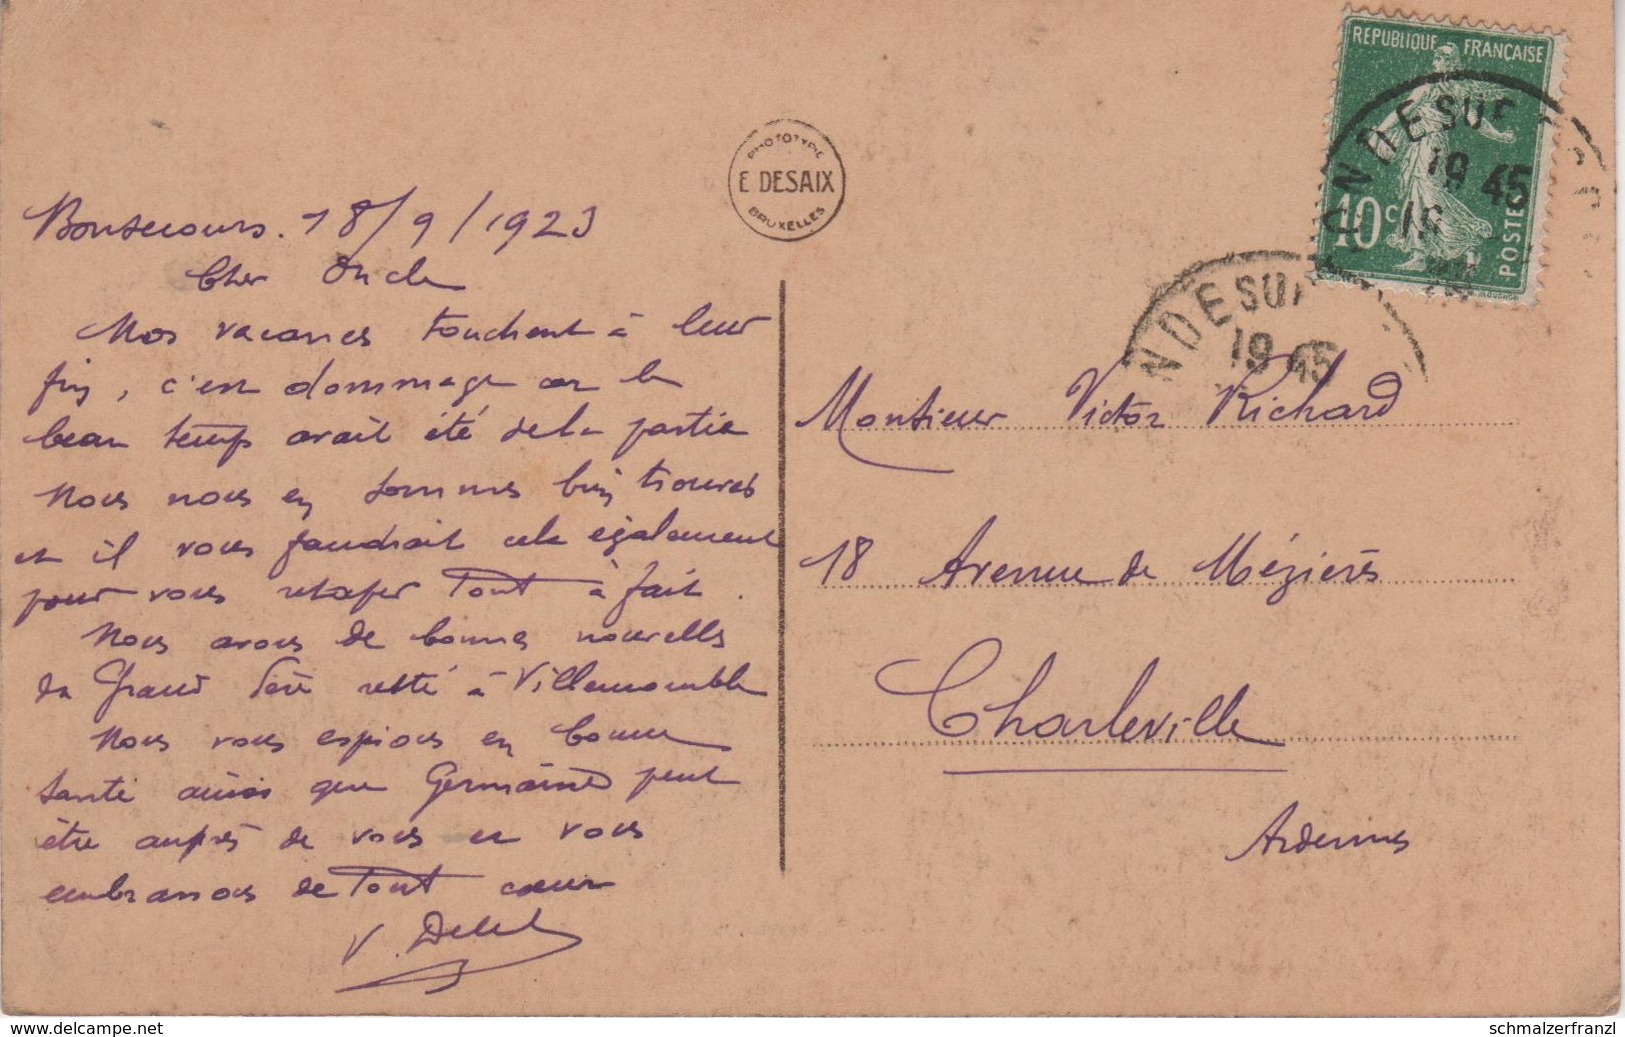 Bonsecours. 18/9/1923
Cher Oncle
Nos vacances touchent à leur
fin, c'est dommage car le
beau temps avait été de la partie
Nous nous en sommes bien trouvés
et il vous faudrait cela également
pour vous retaper tout à fait.
Nous avons de bonnes nouvelles
de Grand Père resté à Villemomble
Nous vous espions en bonne
santé ainsi que Germaine peut
être auprès de vous et vous
embrassons de tout cœur
V.
PHOTOTYPIE
E DESAIX
BRUXELLES
REPUBLIQUE FRANÇAISE
10c
POSTES
NDESU
19 45
18
NDESU
19 45
Monsieur Victor Richard
18 Avenue de Mézières
Charleville
Ardennes
www.delcampe.net
schmalzerfranzl